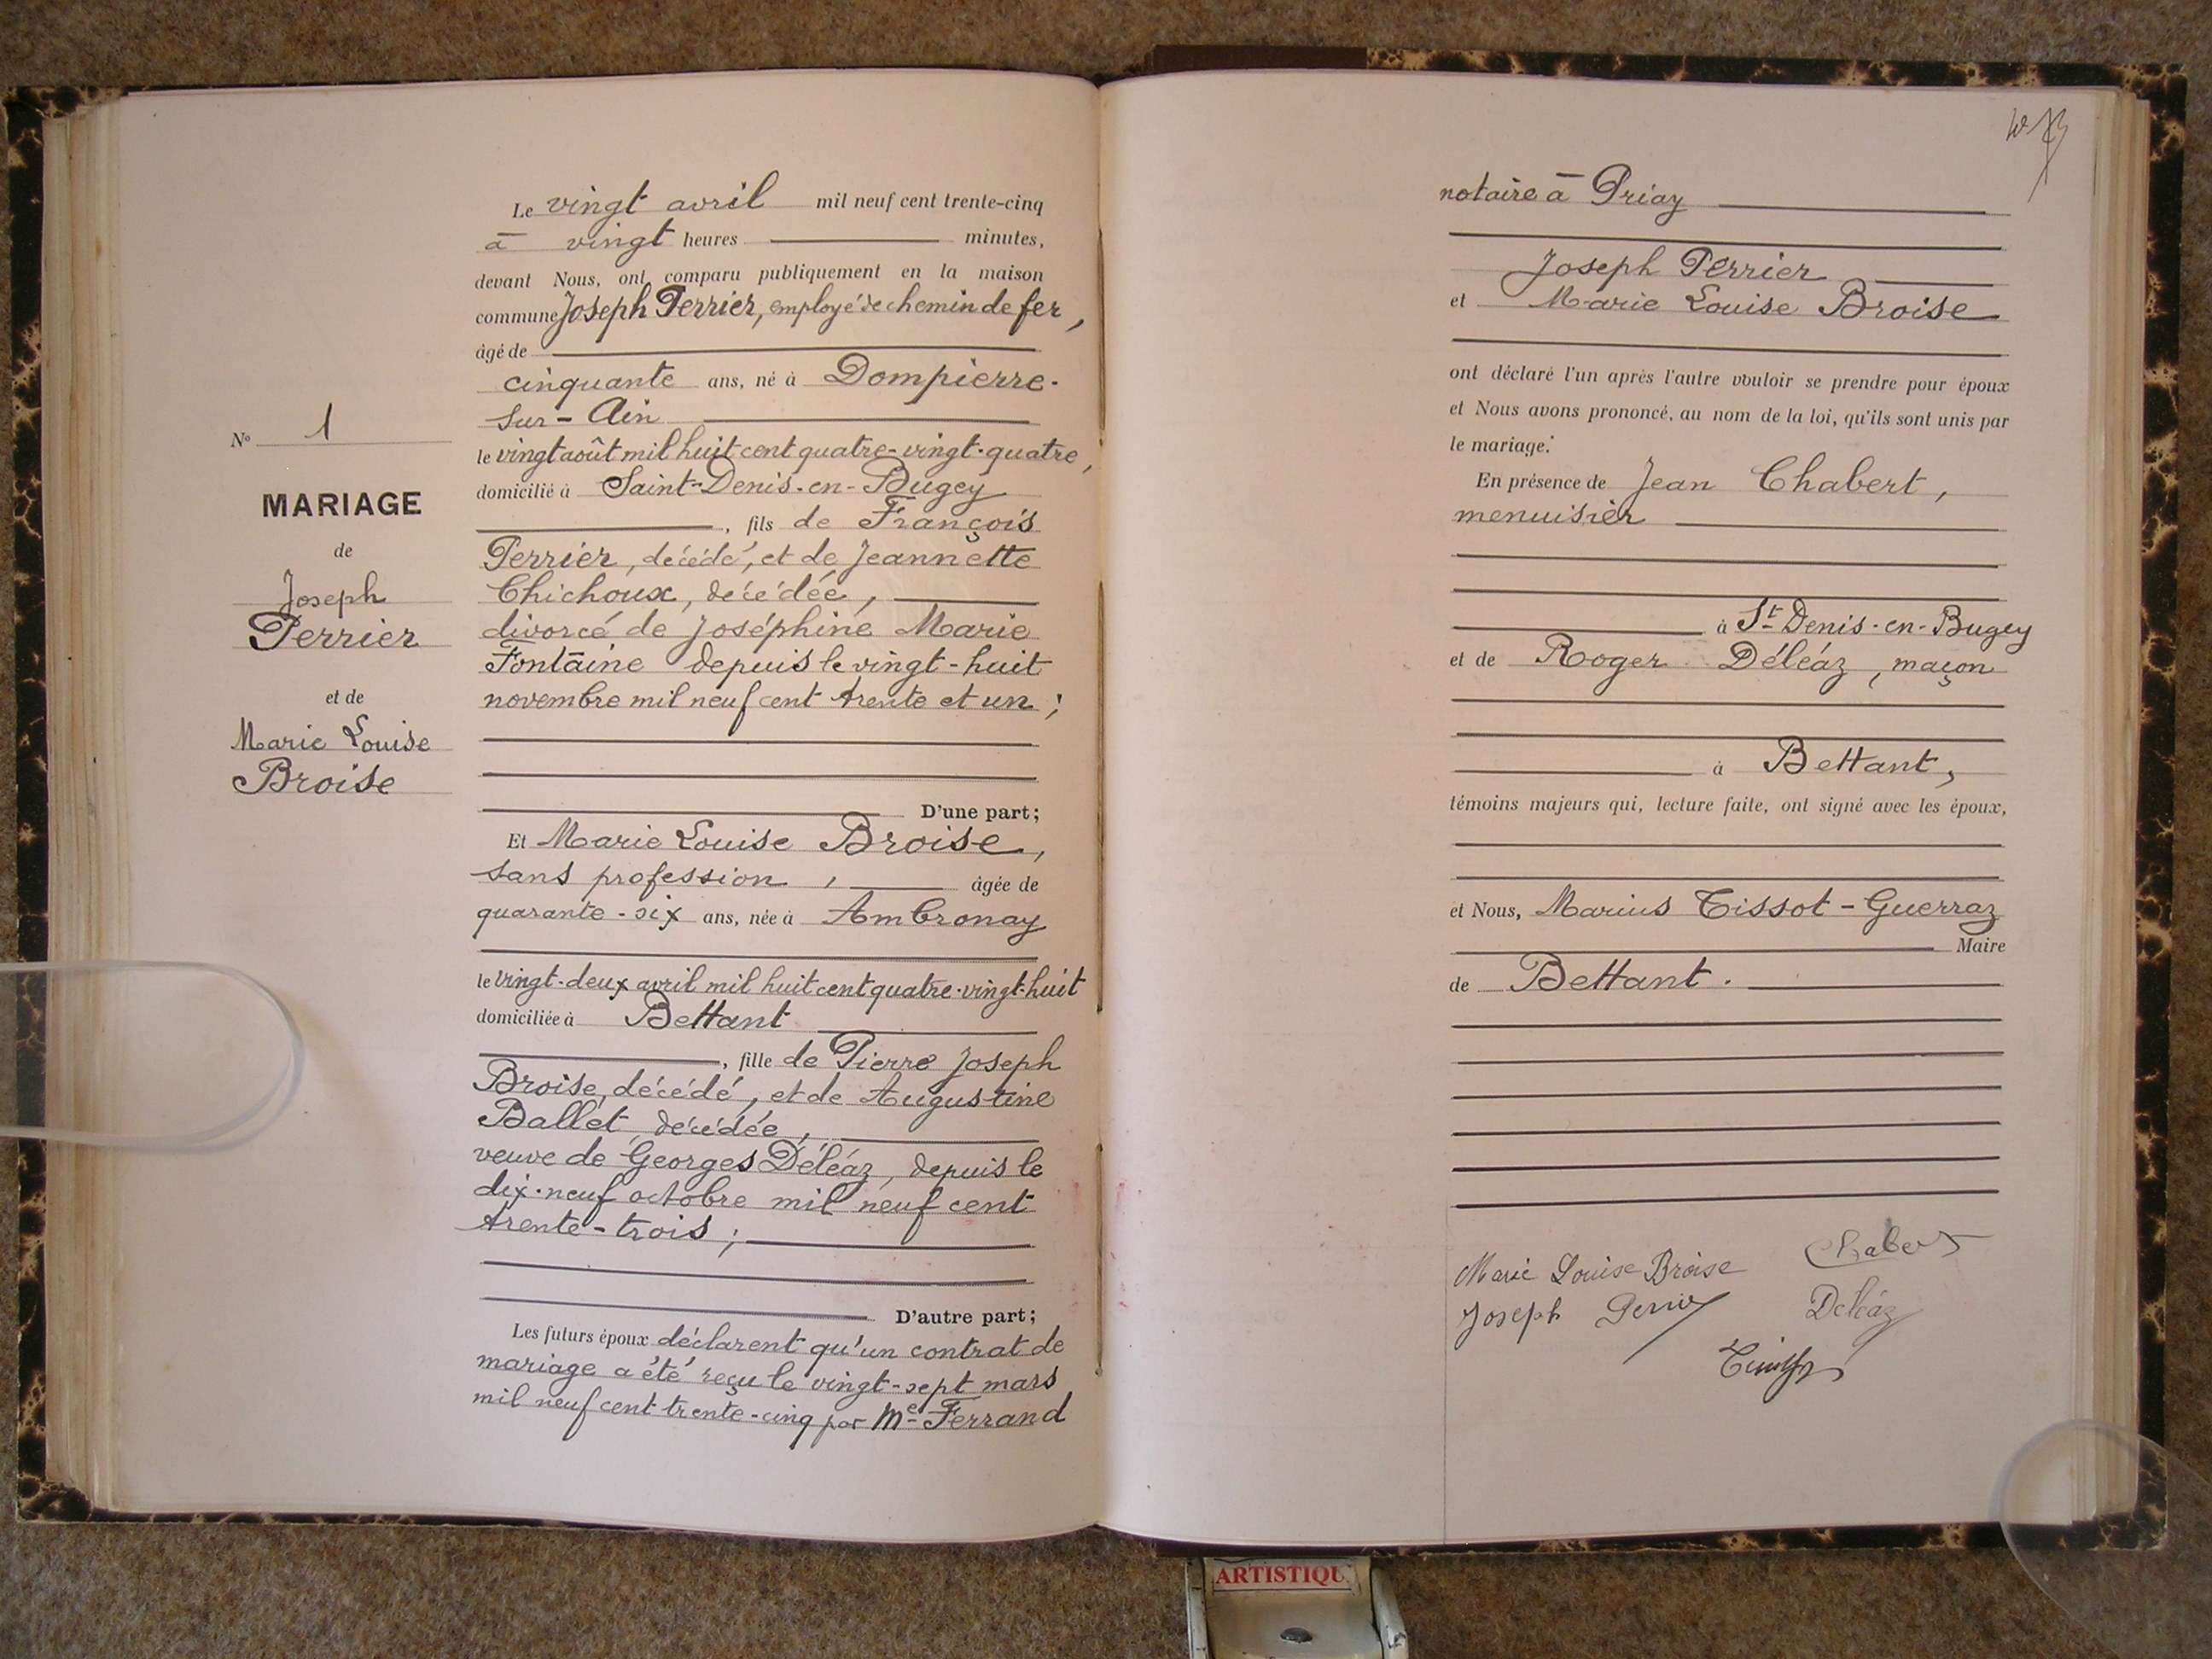 Le vingt avril mil neuf cent trente-cinq
à vingt heures minutes,
devant Nous, ont comparu publiquement en la maison
commune Joseph Perrier, employé de chemin de fer,
âgé de
cinquante ans, né à Dompierre-
sur-Ain
le vingt août mil huit cent quatre-vingt-quatre,
domicilié à Saint-Denis-en-Bugey
, fils de François
Perrier, décédé, et de Jeannette
Chichoux, décédée,
divorcé de Joséphine Marie
Fontaine depuis le vingt-huit
novembre mil neuf cent trente et un;
D'une part;
Et Marie Louise Broise,
sans profession, âgée de
quarante-six ans, née à Ambronay
le vingt-deux avril mil huit cent quatre-vingt-huit
domiciliée à Bettant
, fille de Pierre Joseph
Broise, décédé, et de Augustine
Ballet, décédée,
veuve de Georges Déléaz, depuis le
dix-neuf octobre mil neuf cent
trente-trois;
D'autre part;
Les futurs époux déclarent qu'un contrat de
mariage a été reçu le vingt-sept mars
mil neuf cent trente-cinq par Me Ferrand
No 1
MARIAGE
de
Joseph
Perrier
et de
Marie Louise
Broise
notaire à Priay
Joseph Perrier
et Marie Louise Broise
ont déclaré l'un après l'autre vouloir se prendre pour époux
et Nous avons prononcé, au nom de la loi, qu'ils sont unis par
le mariage.
En présence de Jean Chabert,
menuisier
à St Denis-en-Bugey
et de Roger Déléaz, maçon
à Bettant,
témoins majeurs qui, lecture faite, ont signé avec les époux,
et Nous, Marius Tissot-Guerraz
Maire
de Bettant.
Marie Louise Broise Chabert
Joseph Perrier Deléaz
ARTISTIQU